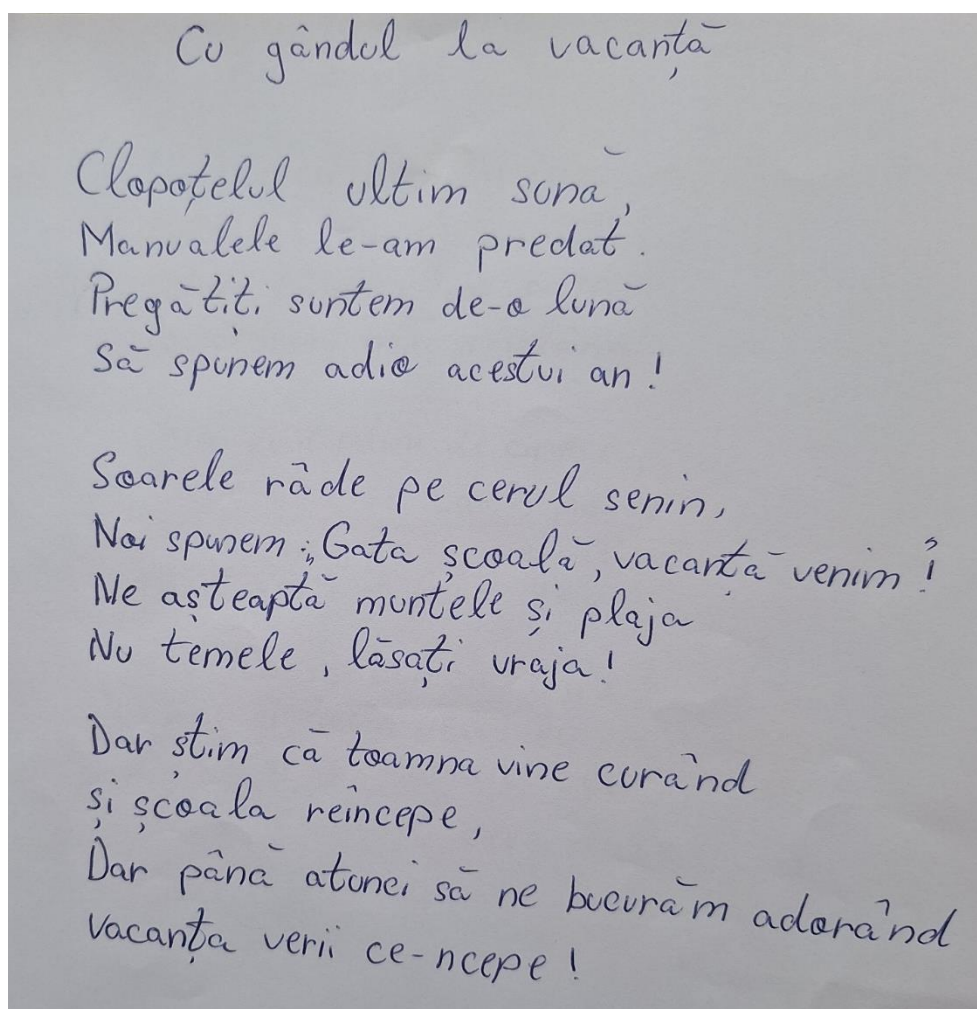 Cu gândul la vacanță
Clopoțelul ultim sună,
Manualele le-am predat.
Pregătiți suntem de-o lună
Să spunem adio acestui an!
Soarele râde pe cerul senin,
Noi spunem: „Gata școală, vacanță venim!”
Ne așteaptă muntele și plaja
Nu temele, lăsați vraja!
Dar știm că toamna vine curând
și școala reîncepe,
Dar până atunci să ne bucurăm adorând
Vacanța verii ce-ncepe!